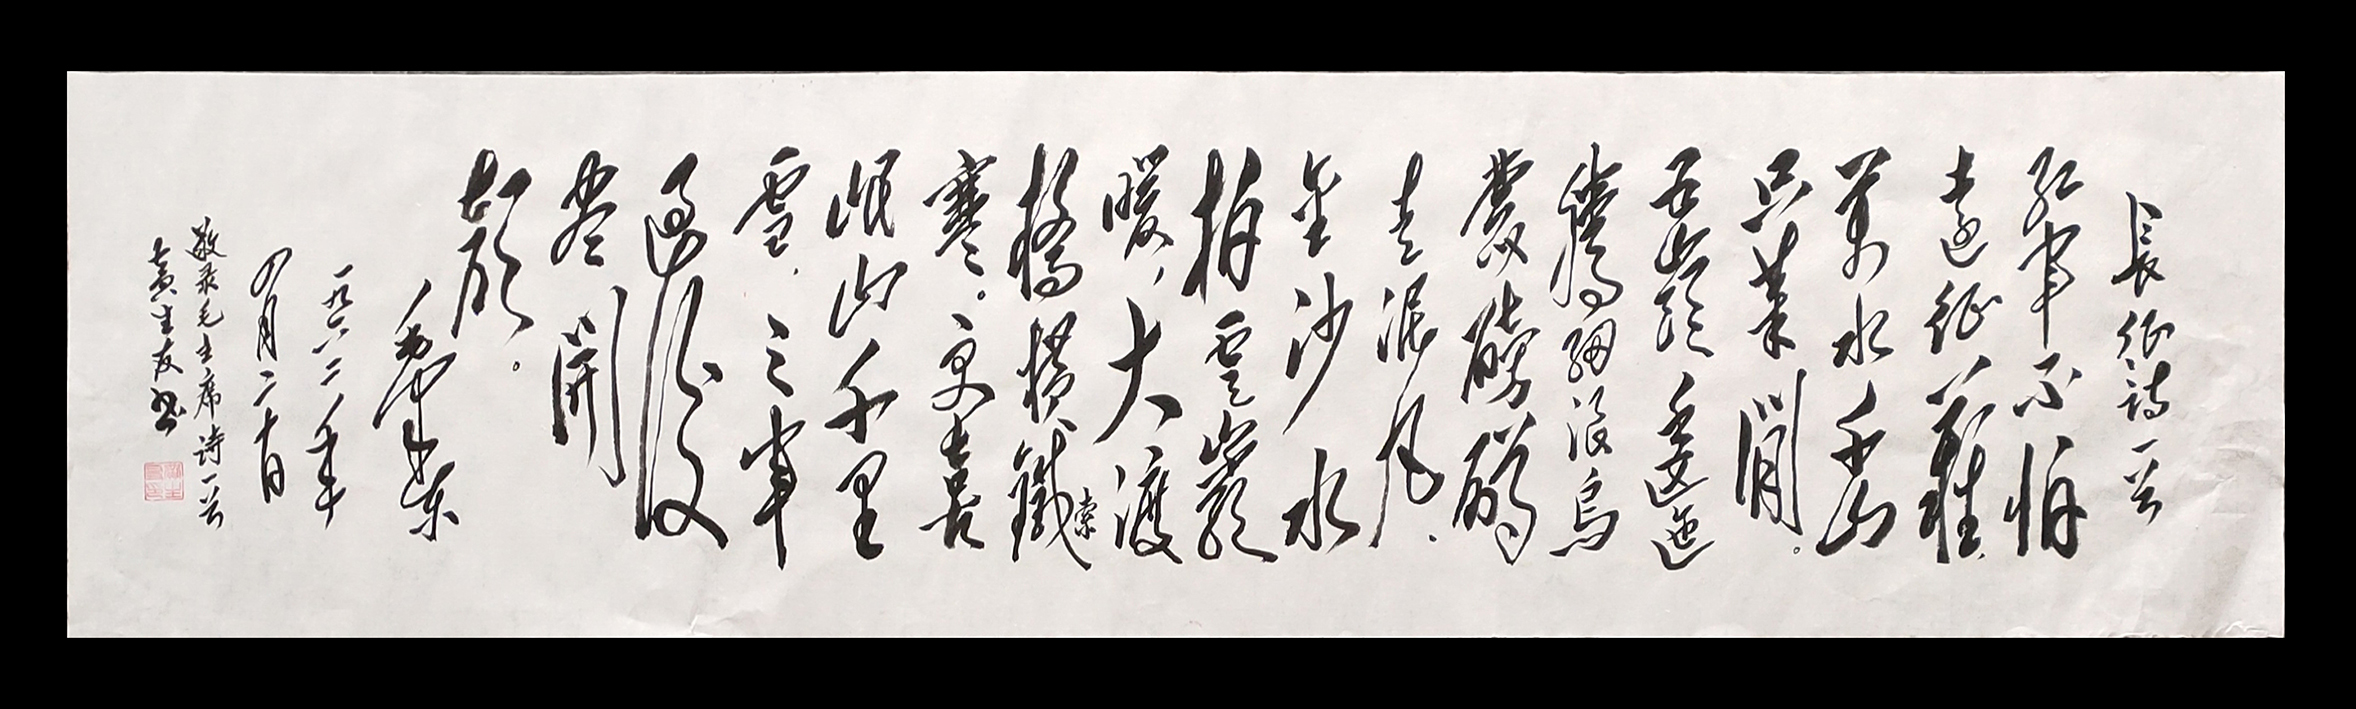 長征诗一首
红軍不怕
遠征難，
萬水千山
只等閒。
五嶺逶迤
騰細浪，烏
蒙磅礴
走泥丸．
金沙水
拍雲崖
暖，大渡
橋横鐵索
寒。更喜
岷山千里
雪．三軍
過后
尽開
颜。
毛澤東
一九六二年
四月二十日
敬录毛主席诗一首
黄生友书